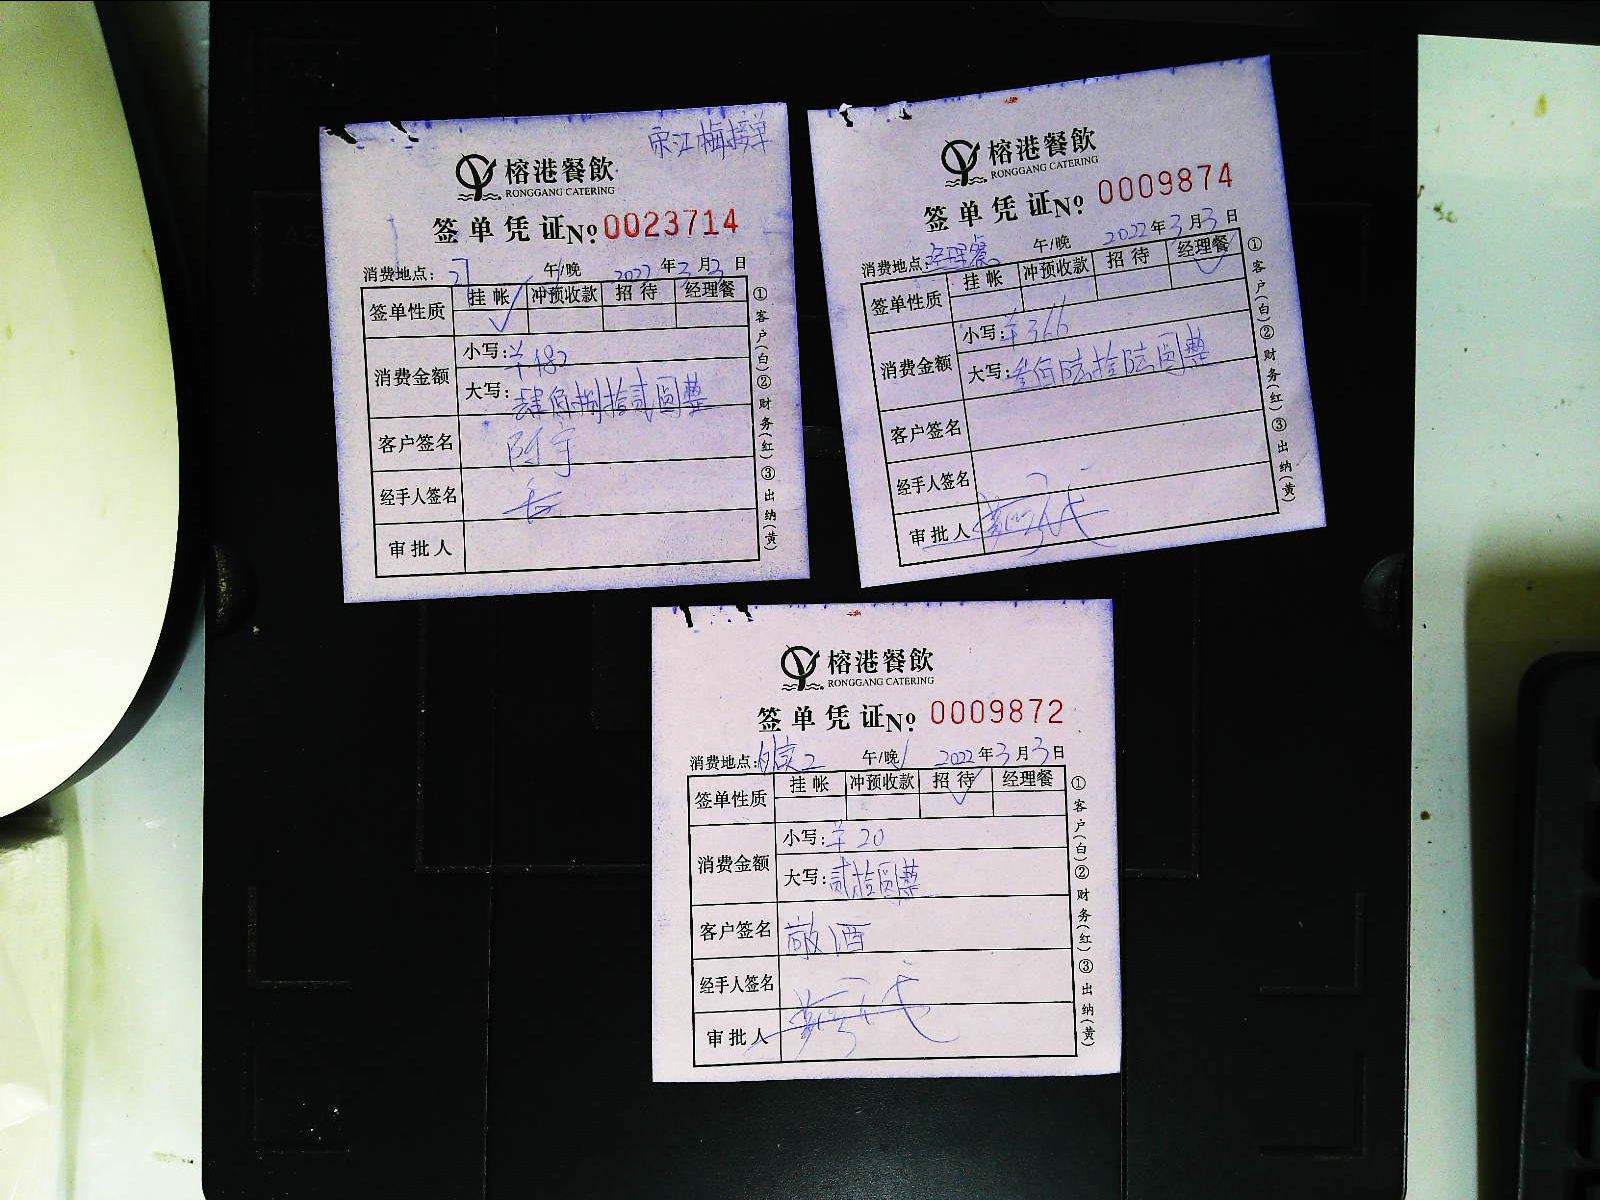 宋江梅接单
榕港餐飲
RONGGANG CATERING
签单凭证 No. 0023714
消费地点: 午/晚 2022年3月3日
签单性质 挂帐 冲预收款 招待 经理餐
✓
消费金额 小写: ¥482
大写: 肆佰捌拾贰圆整
客户签名 陈宇
经手人签名
审批人
①客户(白)②财务(红)③出纳(黄)
榕港餐飲
RONGGANG CATERING
签单凭证 No. 0009874
消费地点: 经理餐 午/晚 2022年3月3日
签单性质 挂帐 冲预收款 招待 经理餐
✓
消费金额 小写: ¥366
大写: 叁佰陆拾陆圆整
客户签名
经手人签名
审批人
①客户(白)②财务(红)③出纳(黄)
榕港餐飲
RONGGANG CATERING
签单凭证 No. 0009872
消费地点: 午/晚 2022年3月3日
签单性质 挂帐 冲预收款 招待 经理餐
✓
消费金额 小写: ¥20
大写: 贰拾圆整
客户签名 敬酒
经手人签名
审批人
①客户(白)②财务(红)③出纳(黄)